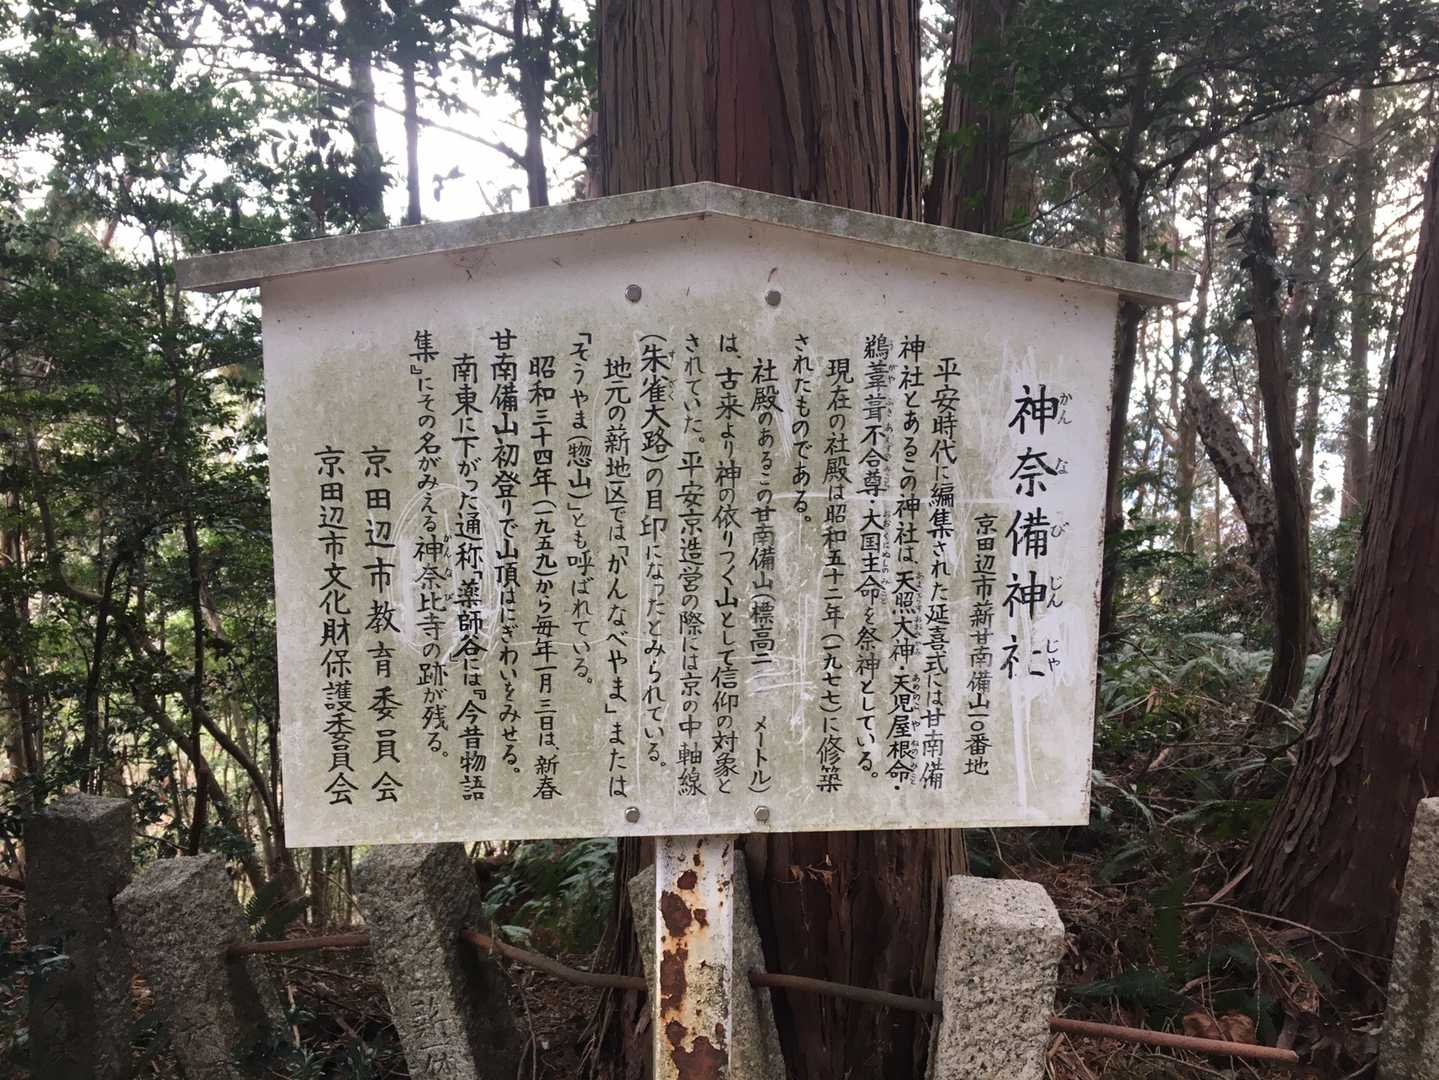 神奈備神社
かんなびじんじゃ
京田辺市薪甘南備山一〇番地
平安時代に編集された延喜式には甘南備
神社とあるこの神社は、天照大神・天児屋根命・
鵜葺葺不合尊・大国主命を祭神としている。
現在の社殿は昭和五十二年(一九七七)に修築
されたものである。
社殿のあるこの甘南備山(標高二二一メートル)
は、古来より神の依りつく山として信仰の対象と
されていた。平安京造営の際には京の中軸線
(朱雀大路)の目印になったとみられている。
地元の薪地区では「かんなべやま」または
「そうやま(惣山)」とも呼ばれている。
昭和三十四年(一九五九)から毎年一月三日は、新春
甘南備山初登りで山頂はにぎわいをみせる。
南東に下がった通称「薬師谷」には『今昔物語
集』にその名がみえる神奈比寺の跡が残る。
京田辺市教育委員会
京田辺市文化財保護委員会